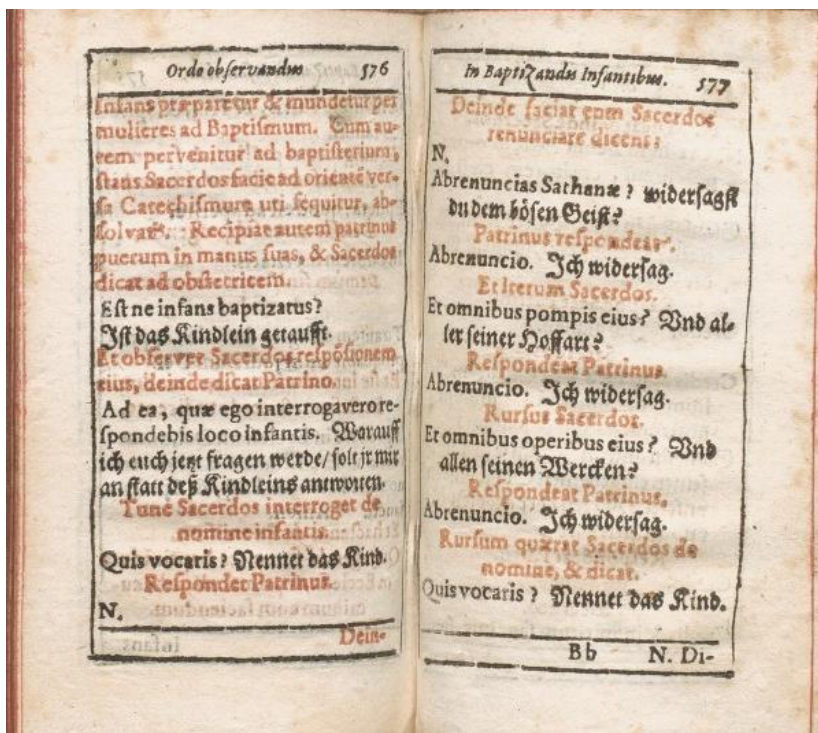 Ordo observandus 576
Infans præparetur & mundetur per
mulieres ad Baptiſmum. Cum au-
tem pervenitur ad baptiſterium,
ſtans Sacerdos facie ad orientē ver-
ſa Catechiſmum uti ſequitur, ab-
ſolvat. Recipiat autem patrinus
puerum in manus ſuas, & Sacerdos
dicat ad obſtetricem.
Eſt ne infans baptizatus?
Iſt das Kindlein getaufft.
Et obſervet Sacerdos reſpōſionem
eius, deinde dicat Patrino.
Ad ea, quæ ego interrogavero re-
ſpondebis loco infantis. Warauff
ich euch jetzt fragen werde/ ſolt jr mir
an ſtatt deß Kindleins antworten.
Tunc Sacerdos interroget de
nomine infantis.
Quis vocaris? Nennet das Kind.
Reſpondet Patrinus.
N.
Dein-
In Baptizandis Infantibus. 577
Deinde faciat eum Sacerdos
renunciare dicens:
N.
Abrenuncias Sathanæ? widerſagſt
du dem böſen Geiſt?
Patrinus reſpondeat.
Abrenuncio. Ich widerſag.
Et Iterum Sacerdos.
Et omnibus pompis eius? Vnd al-
ler ſeiner Hoffart?
Reſpondeat Patrinus.
Abrenuncio. Ich widerſag.
Rurſus Sacerdos.
Et omnibus operibus eius? Vnd
allen ſeinen Wercken?
Reſpondeat Patrinus.
Abrenuncio. Ich widerſag.
Rurſum quærat Sacerdos de
nomine, & dicat.
Quis vocaris? Nennet das Kind.
Bb N. Di-